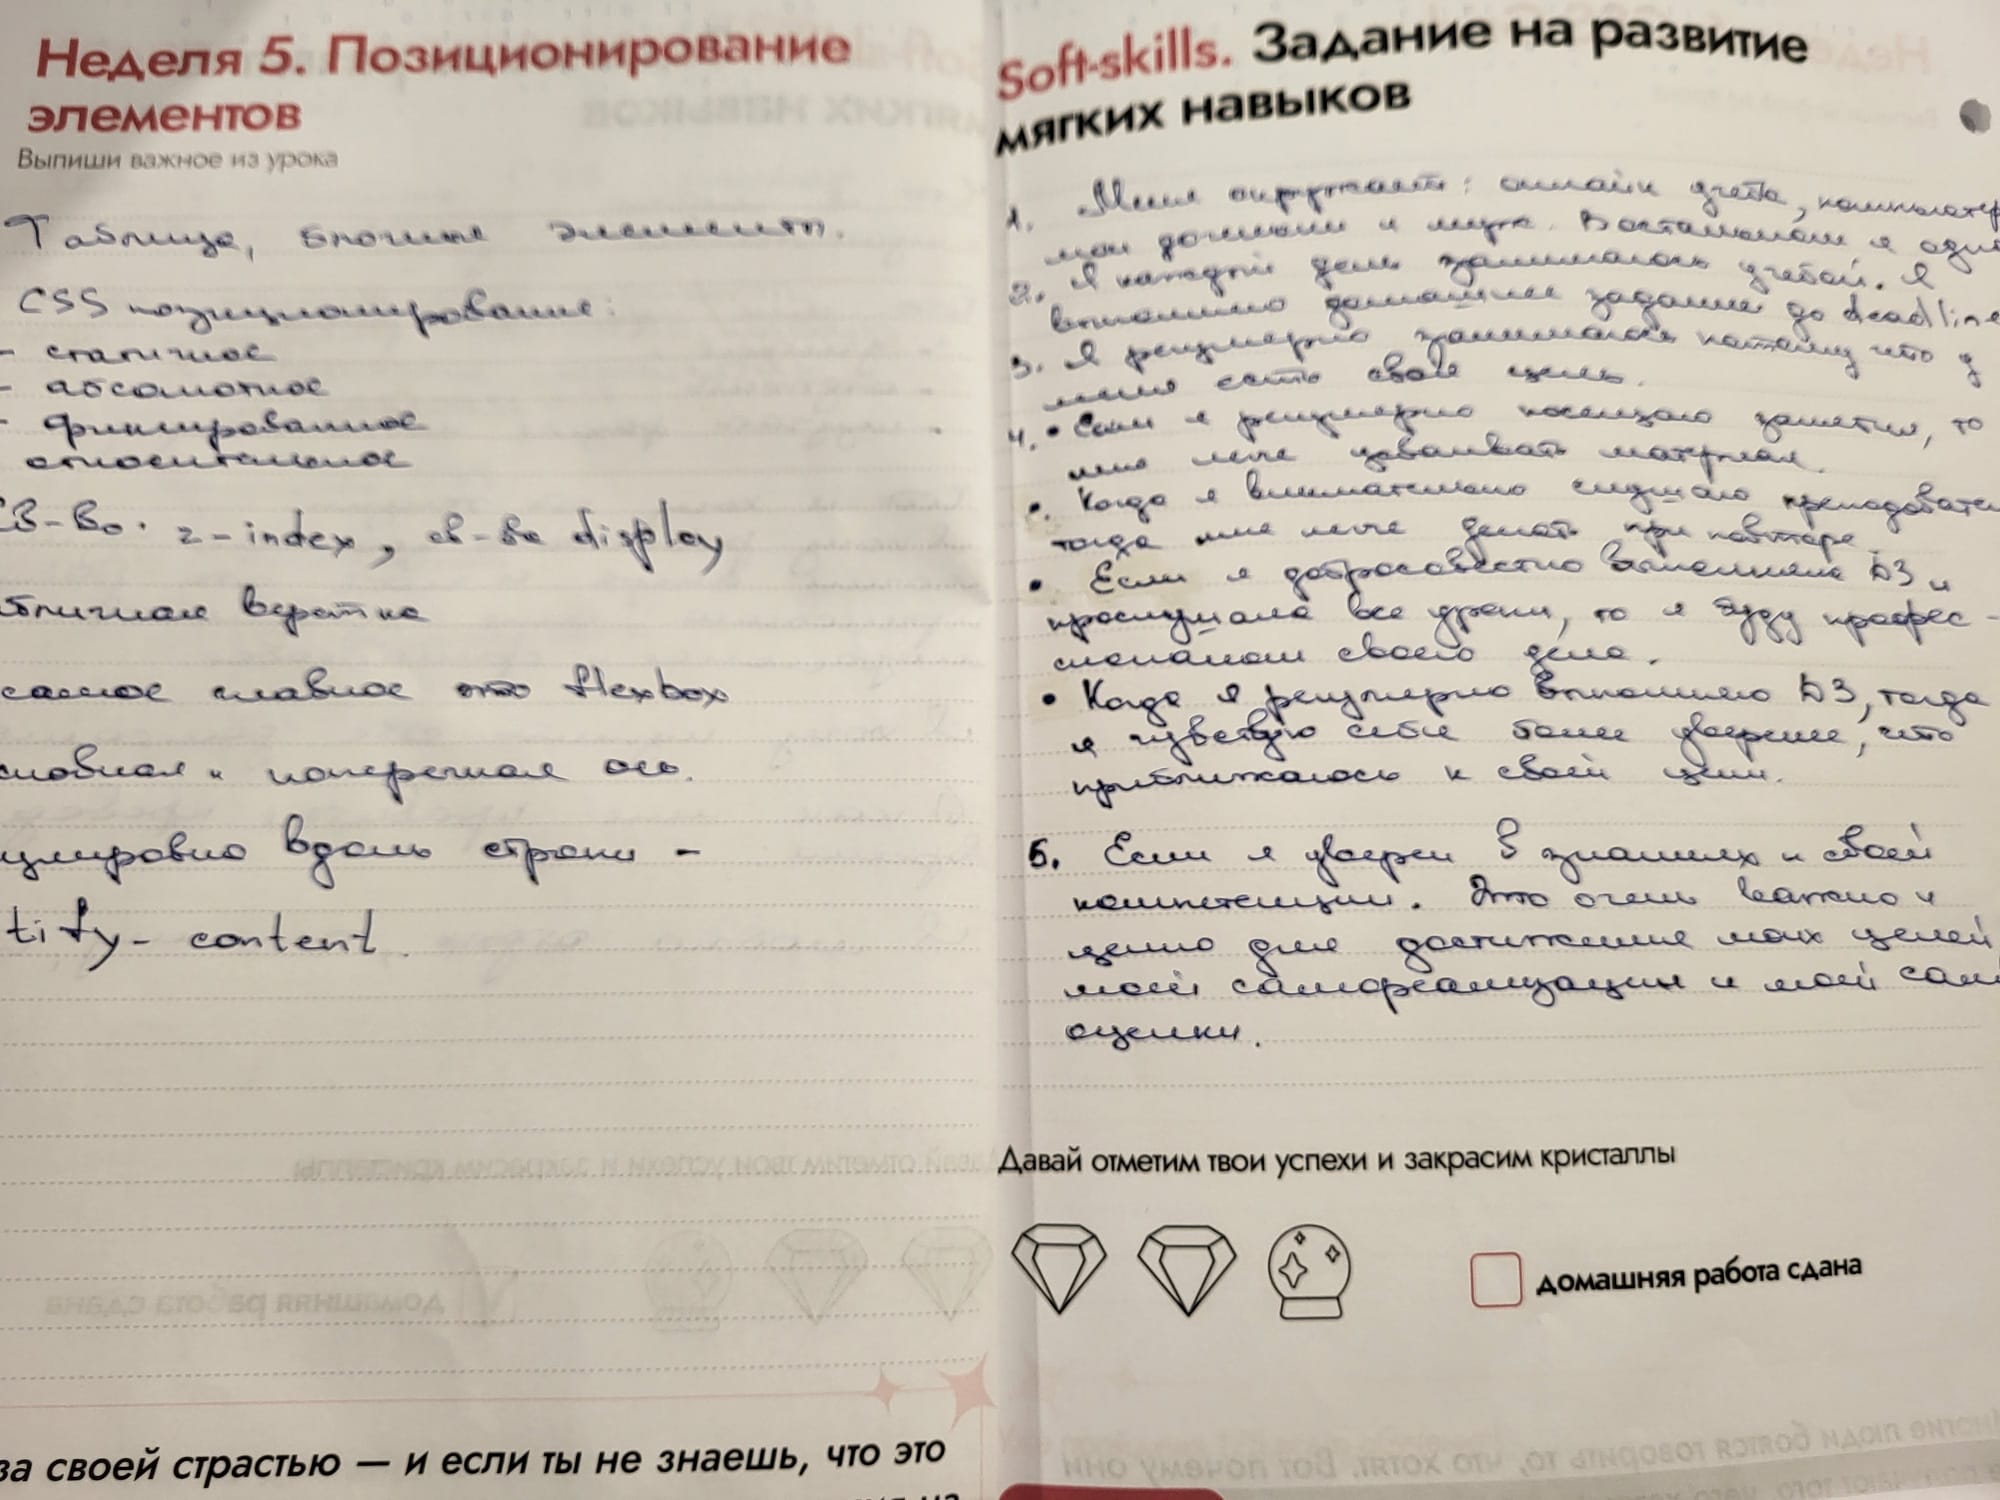 Неделя 5. Позиционирование
элементов
Выпиши важное из урока
Таблица, блочные элементы.
CSS позиционирование:
- статичное
- абсолютное
- фиксированное
относительное
св-во: z-index, св-ва display
бличная верстка
самое главное это flexbox
сновная и поперечная ось.
улировно вдоль строки -
tify-content.
за своей страстью — и если ты не знаешь, что это
Soft-skills. Задание на развитие
мягких навыков
1. Меня окружает: онлайн учеба, компьютер
мои домашни и муж. В остальном я одна
2. Я каждый день занимаюсь учебой. Я
выполняю домашнее задание до deadline
3. Я регулярно занимаюсь потому что у
меня есть своя цель.
4. • Если я регулярно посещаю занятия, то
мне легче усваивать материал.
• Когда я внимательно слушаю преподавател
тогда мне легче делать при повторе.
• Если я добросовестно выполняла ДЗ и
прослушала все уроки, то я буду профес-
сионалом своего дела.
• Когда я регулярно выполняю ДЗ, тогда
я чувствую себя более уверенее, что
приближаюсь к своей цели.
5. Если я уверен в знаниях и своей
компетенции. Это очень важно и
ценно для достижения моих целей
моей самореализации и моей сам
оценки.
Давай отметим твои успехи и закрасим кристаллы
домашняя работа сдана